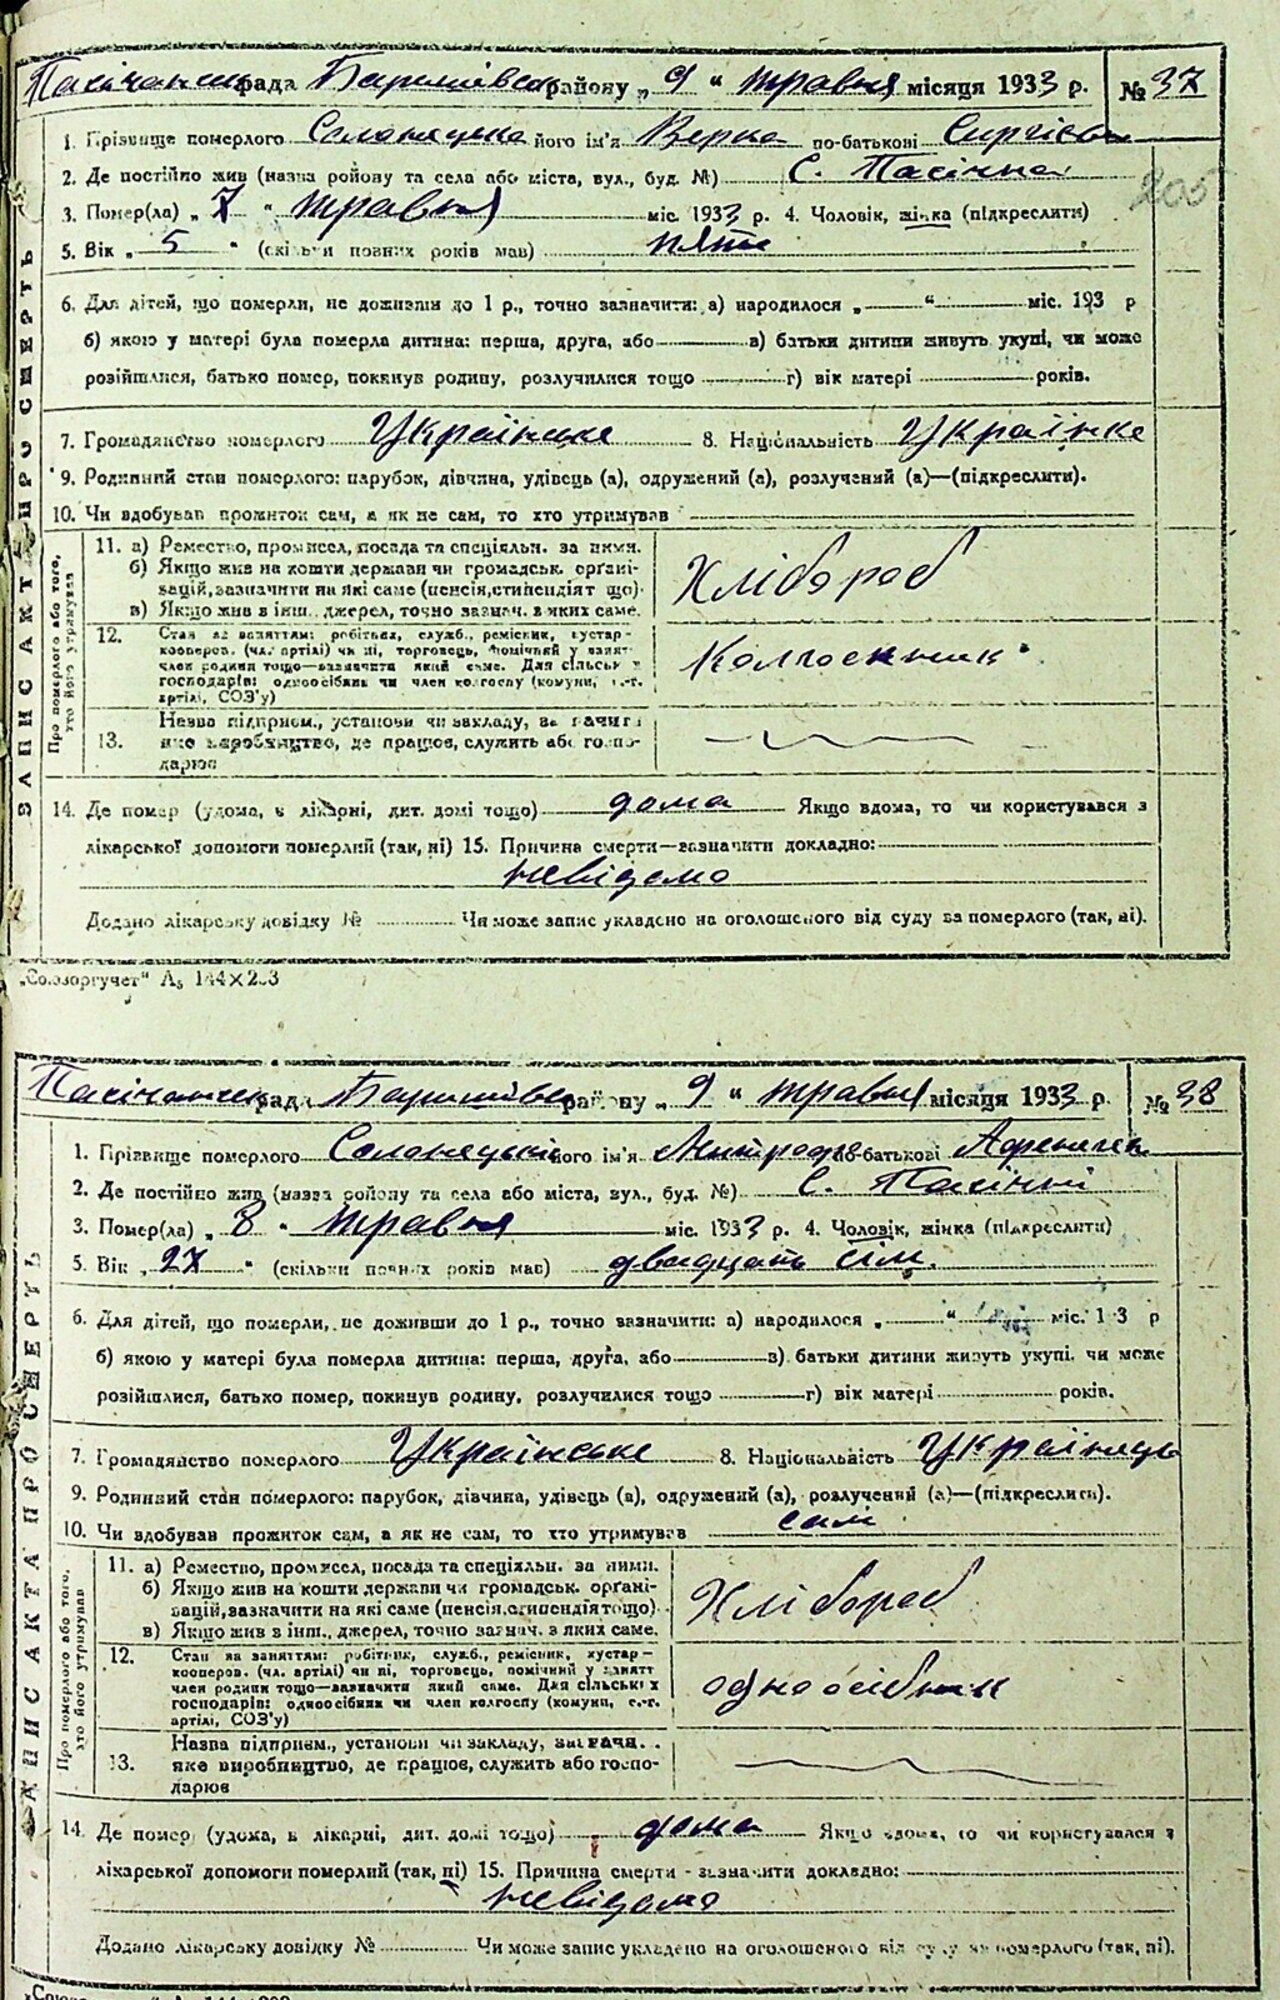 Пасічанська рада Баришівськ району „ 9 “ травня місяця 1933 р. № 37
1. Прізвище померлого Солонецька його ім'я Верка по-батькові Сиргієвн
2. Де постійно жив (назва ройону та села або міста, вул., буд. №) С. Пасічна
205
3. Помер(ла) „ 7 “ травня міс. 1933 р. 4. Чоловік, жінка (підкреслити)
5. Вік „ 5 “ (скільки повних років мав) пять
6. Для дітей, що померли, не доживши до 1 р., точно зазначити: а) народилося „ “ міс. 193 р
б) якою у матері була померла дитина: перша, друга, або в) батьки дитини живуть укупі, чи може
розійшлися, батько помер, покинув родину, розлучилися тощо г) вік матері років.
7. Громадянство померлого Українське 8. Національність Українке
9. Родинний стан померлого: парубок, дівчина, удівець (а), одружений (а), розлучений (а)—(підкреслити).
10. Чи здобував прожиток сам, а як не сам, то хто утримував
ЗАПИС АКТА ПРО СМЕРТЬ
Про померлого або того, хто його утримував
11. а) Ремество, промисел, посада та спеціяльн. за ними.
б) Якщо жив на кошти держави чи громадськ. орґані-
зацій, зазначити на які саме (пенсія, стипендіят що)
в) Якщо жив в інш., джерел, точно зазнач. з яких саме.
Хлібороб
12. Стан за заняттям: робітник, служб., ремісник, кустар-
кооперов. (чл. артілі) чи ні, торговець, помічний у занят
член родини тощо—зазначити який саме. Для сільськ х
господарів: одноосібник чи член колгоспу (комуни, с.-г.
артілі, СОЗ'у)
Колгоспник
13. Назва підприєм., установи чи закладу, зазначити
яке виробництво, де працює, служить або госпо-
дарює
14. Де помер (удома, в лікарні, дит. домі тощо) дома Якщо вдома, то чи користувався з
лікарської допомоги померлий (так, ні) 15. Причина смерти—зазначити докладно:
невідомо
Додано лікарську довідку № Чи може запис укладено на оголошеного від суду за померлого (так, ні).
„Союзоргучет“ А5 144×203
Пасічанська рада Баришівськ району „ 9 “ травня місяця 1933 р. № 38
1. Прізвище померлого Солонецький його ім'я Митрофа по-батькові
2. Де постійно жив (назва ройону та села або міста, вул., буд. №) С. Пасічні
3. Помер(ла) „ 8 “ травня міс. 1933 р. 4. Чоловік, жінка (підкреслити)
5. Вік „ 27 “ (скільки повних років мав) двадцать сім.
6. Для дітей, що померли, не доживши до 1 р., точно зазначити: а) народилося „ “ міс. 1 3 р
б) якою у матері була померла дитина: перша, друга, або в) батьки дитини живуть укупі. чи може
розійшлися, батько помер, покинув родину, розлучилися тощо г) вік матері років.
7. Громадянство померлого Українське 8. Національність Українець
9. Родинний стан померлого: парубок, дівчина, удівець (а), одружений (а), розлучений (а)—(підкреслити).
10. Чи здобував прожиток сам, а як не сам, то хто утримував самі
ЗАПИС АКТА ПРО СМЕРТЬ
Про померлого або того, хто його утримував
11. а) Ремество, промисел, посада та спеціяльн. за ними.
б) Якщо жив на кошти держави чи громадськ. орґані-
зацій, зазначити на які саме (пенсія, стипендія тощо)
в) Якщо жив в інш., джерел, точно зазнач. з яких саме.
Хлібороб
12. Стан за заняттям: робітник, служб., ремісник, кустар-
кооперов. (чл. артілі) чи ні, торговець, помічний у занятт
член родини тощо—зазначити який саме. Для сільськ х
господарів: одноосібник чи член колгоспу (комуни, с.-г.
артілі, СОЗ'у)
одноосібник
13. Назва підприєм., установи чи закладу, зазначи
яке виробництво, де працює, служить або госпо-
дарює
14. Де помер (удома, в лікарні, дит. домі тощо) дома Якщо вдома, то чи користувался з
лікарської допомоги померлий (так, ні) 15. Причина смерти - зазначити докладно:
невідомо
Додано лікарську довідку № Чи може запис укладено на оголошеного від суду за померлого (так, ні).